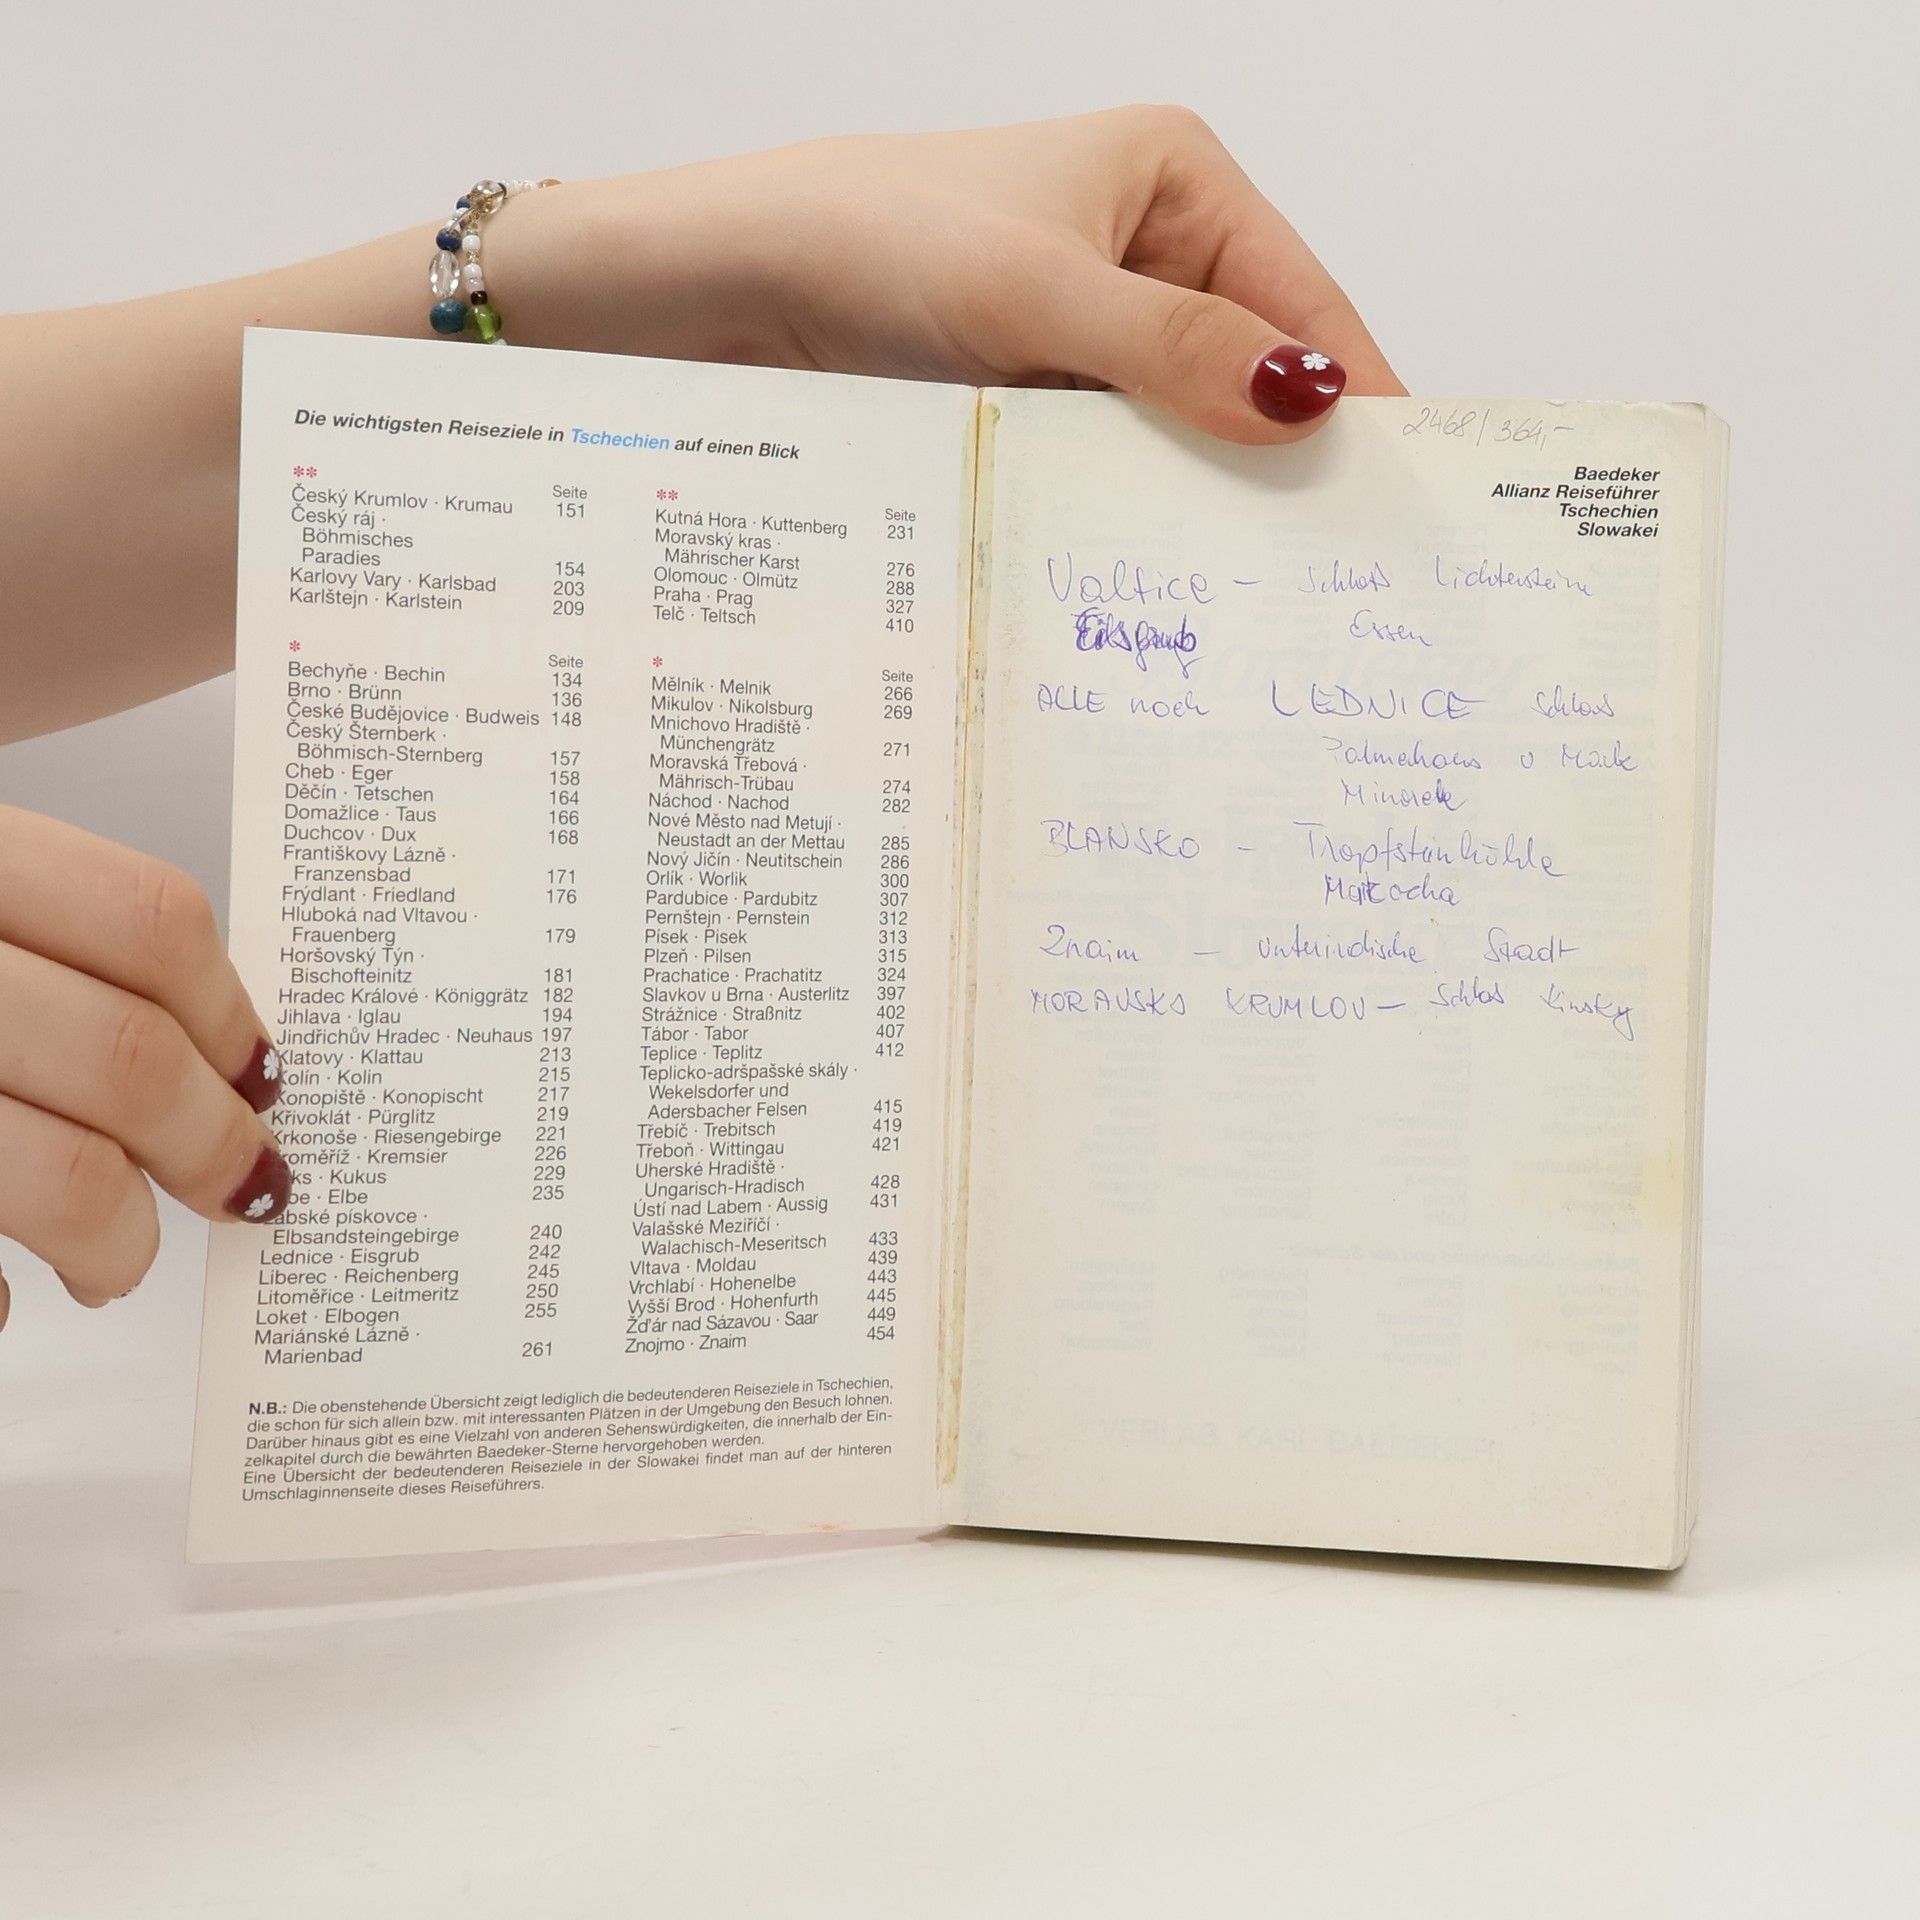 Die wichtigsten Reiseziele in Tschechien auf einen Blick
**
Seite
Český Krumlov · Krumau 151
Český ráj ·
Böhmisches
Paradies 154
Karlovy Vary · Karlsbad 203
Karlštejn · Karlstein 209
**
Seite
Kutná Hora · Kuttenberg 231
Moravský kras ·
Mährischer Karst 276
Olomouc · Olmütz 288
Praha · Prag 327
Telč · Teltsch 410
*
Seite
Bechyňe · Bechin 134
Brno · Brünn 136
České Budějovice · Budweis 148
Český Šternberk ·
Böhmisch-Sternberg 157
Cheb · Eger 158
Děčín · Tetschen 164
Domažlice · Taus 166
Duchcov · Dux 168
Františkovy Lázně ·
Franzensbad 171
Frýdlant · Friedland 176
Hluboká nad Vltavou ·
Frauenberg 179
Horšovský Týn ·
Bischofteinitz 181
Hradec Králové · Königgrätz 182
Jihlava · Iglau 194
Jindřichův Hradec · Neuhaus 197
Klatovy · Klattau 213
Kolín · Kolin 215
Konopiště · Konopischt 217
Křivoklát · Pürglitz 219
Krkonoše · Riesengebirge 221
roměříž · Kremsier 226
ks · Kukus 229
be · Elbe 235
Labské pískovce ·
Elbsandsteingebirge 240
Lednice · Eisgrub 242
Liberec · Reichenberg 245
Litoměřice · Leitmeritz 250
Loket · Elbogen 255
Mariánské Lázně ·
Marienbad 261
*
Seite
Mělník · Melnik 266
Mikulov · Nikolsburg 269
Mnichovo Hradiště ·
Münchengrätz 271
Moravská Třebová ·
Mährisch-Trübau 274
Náchod · Nachod 282
Nové Město nad Metují ·
Neustadt an der Mettau 285
Nový Jičín · Neutitschein 286
Orlík · Worlik 300
Pardubice · Pardubitz 307
Pernštejn · Pernstein 312
Písek · Pisek 313
Plzeň · Pilsen 315
Prachatice · Prachatitz 324
Slavkov u Brna · Austerlitz 397
Strážnice · Straßnitz 402
Tábor · Tabor 407
Teplice · Teplitz 412
Teplicko-adršpašské skály ·
Wekelsdorfer und
Adersbacher Felsen 415
Třebíč · Trebitsch 419
Třeboň · Wittingau 421
Uherské Hradiště ·
Ungarisch-Hradisch 428
Ústí nad Labem · Aussig 431
Valašské Meziříčí ·
Walachisch-Meseritsch 433
Vltava · Moldau 439
Vrchlabí · Hohenelbe 443
Vyšší Brod · Hohenfurth 445
Žďár nad Sázavou · Saar 449
Znojmo · Znaim 454
N.B.: Die obenstehende Übersicht zeigt lediglich die bedeutenderen Reiseziele in Tschechien,
die schon für sich allein bzw. mit interessanten Plätzen in der Umgebung den Besuch lohnen.
Darüber hinaus gibt es eine Vielzahl von anderen Sehenswürdigkeiten, die innerhalb der Ein-
zelkapitel durch die bewährten Baedeker-Sterne hervorgehoben werden.
Eine Übersicht der bedeutenderen Reiseziele in der Slowakei findet man auf der hinteren
Umschlaginnenseite dieses Reiseführers.
2468/364,-
Baedeker
Allianz Reiseführer
Tschechien
Slowakei
Valtice – Schloß Lichtensteine
Essen
ALLE noch LEDNICE Schloss
Palmehaus u
Minarete
BLANSKO – Tropfsteinhöhle
Macocha
Znaim – unterirdische Stadt
MORAVSKO KRUMLOV – Schloß Kinsky